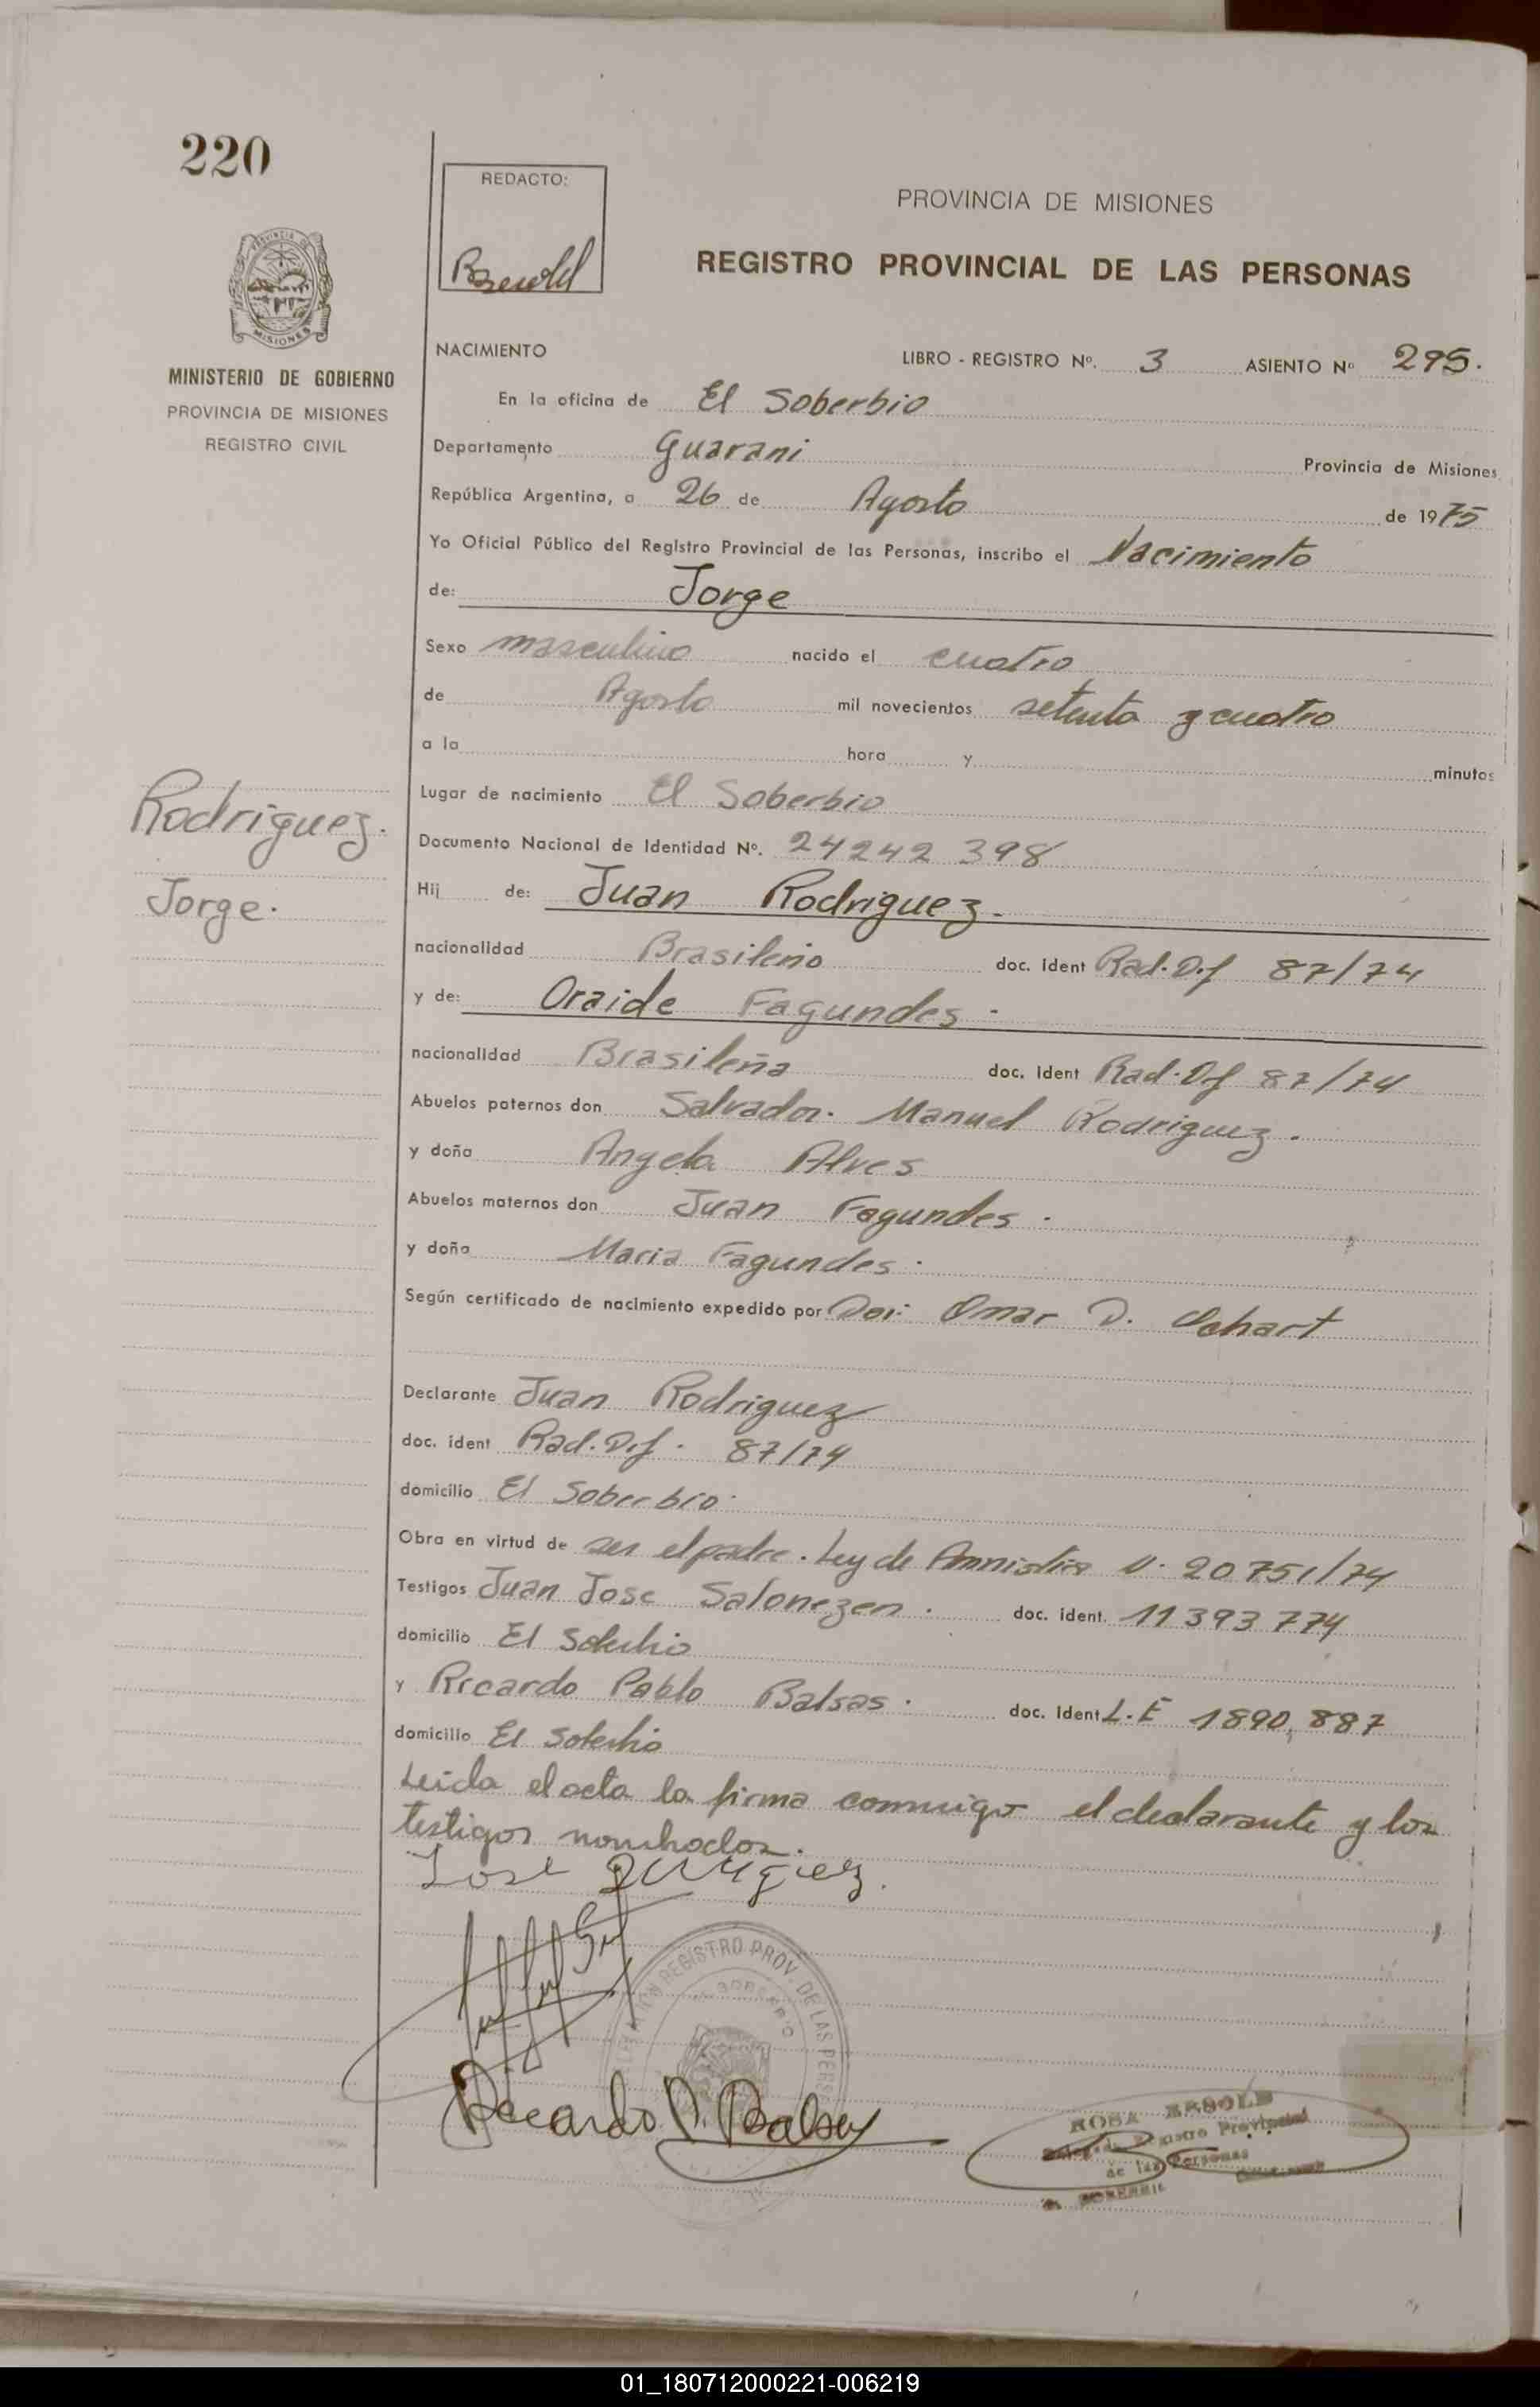 220
REDACTO:
PROVINCIA DE MISIONES
REGISTRO PROVINCIAL DE LAS PERSONAS
MISIONES
MINISTERIO DE GOBIERNO
PROVINCIA DE MISIONES
REGISTRO CIVIL
NACIMIENTO LIBRO - REGISTRO Nº. 3 ASIENTO Nº 295.
En la oficina de El Soberbio
Departamento Guarani Provincia de Misiones
República Argentina, a 26 de Agosto de 1975
Yo Oficial Público del Registro Provincial de las Personas, inscribo el Nacimiento
de: Jorge
Sexo masculino nacido el cuatro
de Agosto mil novecientos setenta y cuatro
a la hora y minutos
Lugar de nacimiento El Soberbio
Rodriguez.
Jorge.
Documento Nacional de Identidad Nº. 24242 398
Hij de: Juan Rodriguez.
nacionalidad Brasileño doc. ident Rad. D.f 87/74
y de: Oraide Fagundes.
nacionalidad Brasileña doc. ident Rad. Df 87/74
Abuelos paternos don Salvador. Manuel Rodriguez.
y doña Angela Alves
Abuelos maternos don Juan Fagundes.
y doña Maria Fagundes.
Según certificado de nacimiento expedido por Omar D. Ochart
Declarante Juan Rodriguez
doc. ident Rad. D.f. 87/74
domicilio El Soberbio
Obra en virtud de ser el padre. Ley de Amnistia N. 20751/74
Testigos Juan Jose Salonezen. doc. ident. 11393774
domicilio El Soberbio
y Ricardo Pablo Balsas. doc. ident L.E 1890,887
domicilio El Soberbio
Leida el acta la firma conmigo el declarante y los
testigos nombrados.
Jose
REGISTRO PROV. DE LAS PERS
Ricardo P. Balsas
ROSA
Registro Provincial
de las Personas
01_180712000221-006219